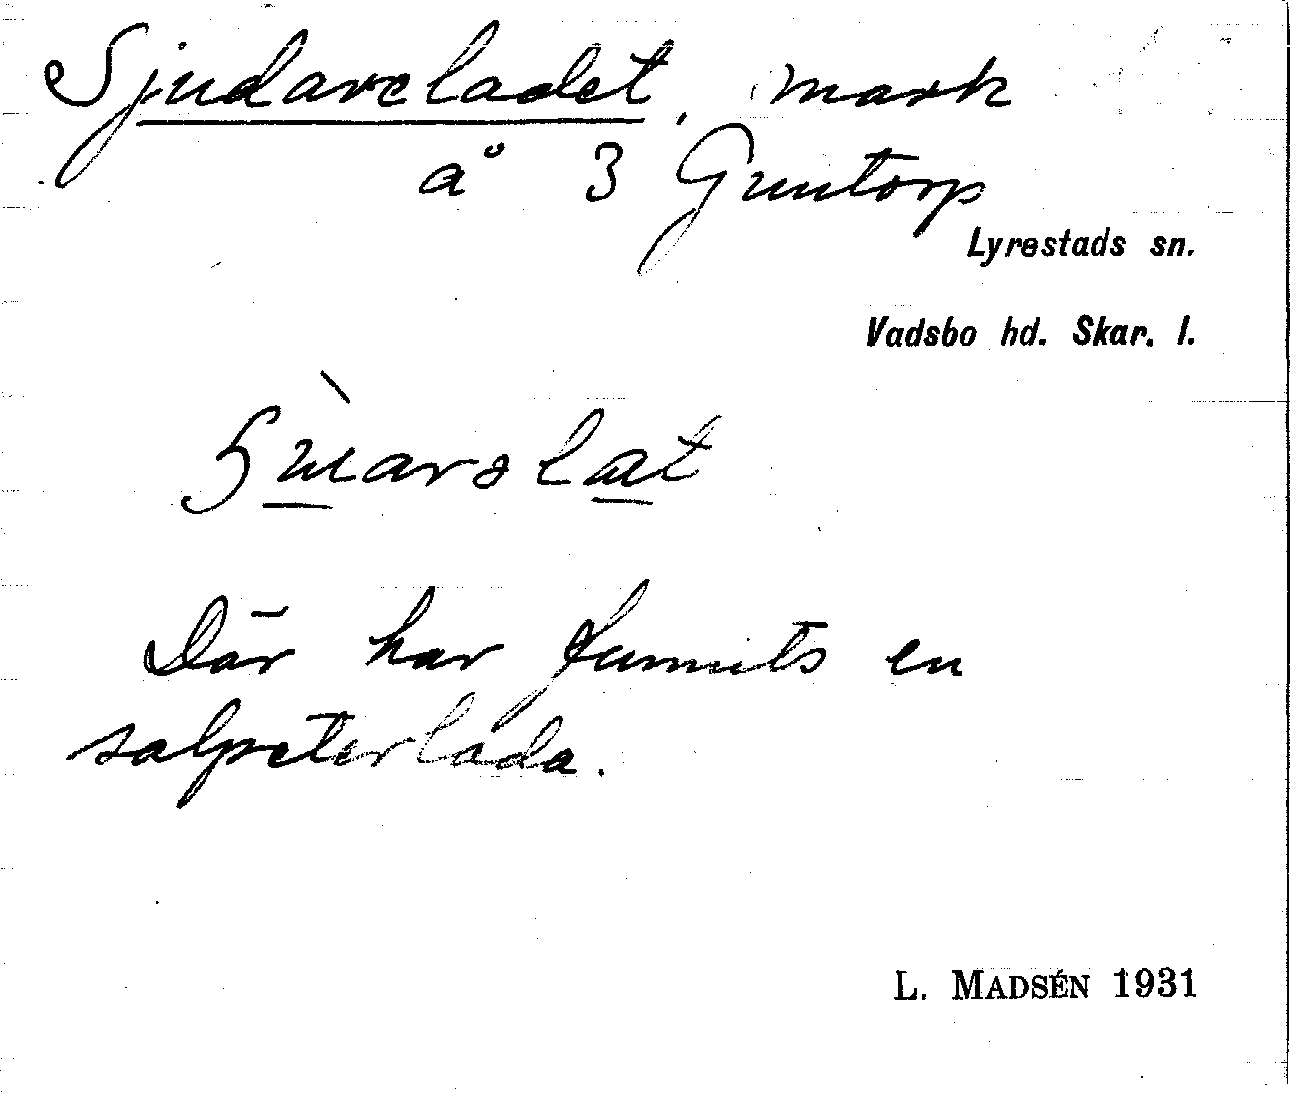 Sjudareladet, mark
å 3 Guntorp
Lyrestads sn.
Vadsbo hd. Skar. l.
Där har funnits en
salpeterlada.
L. MADSÉN 1931